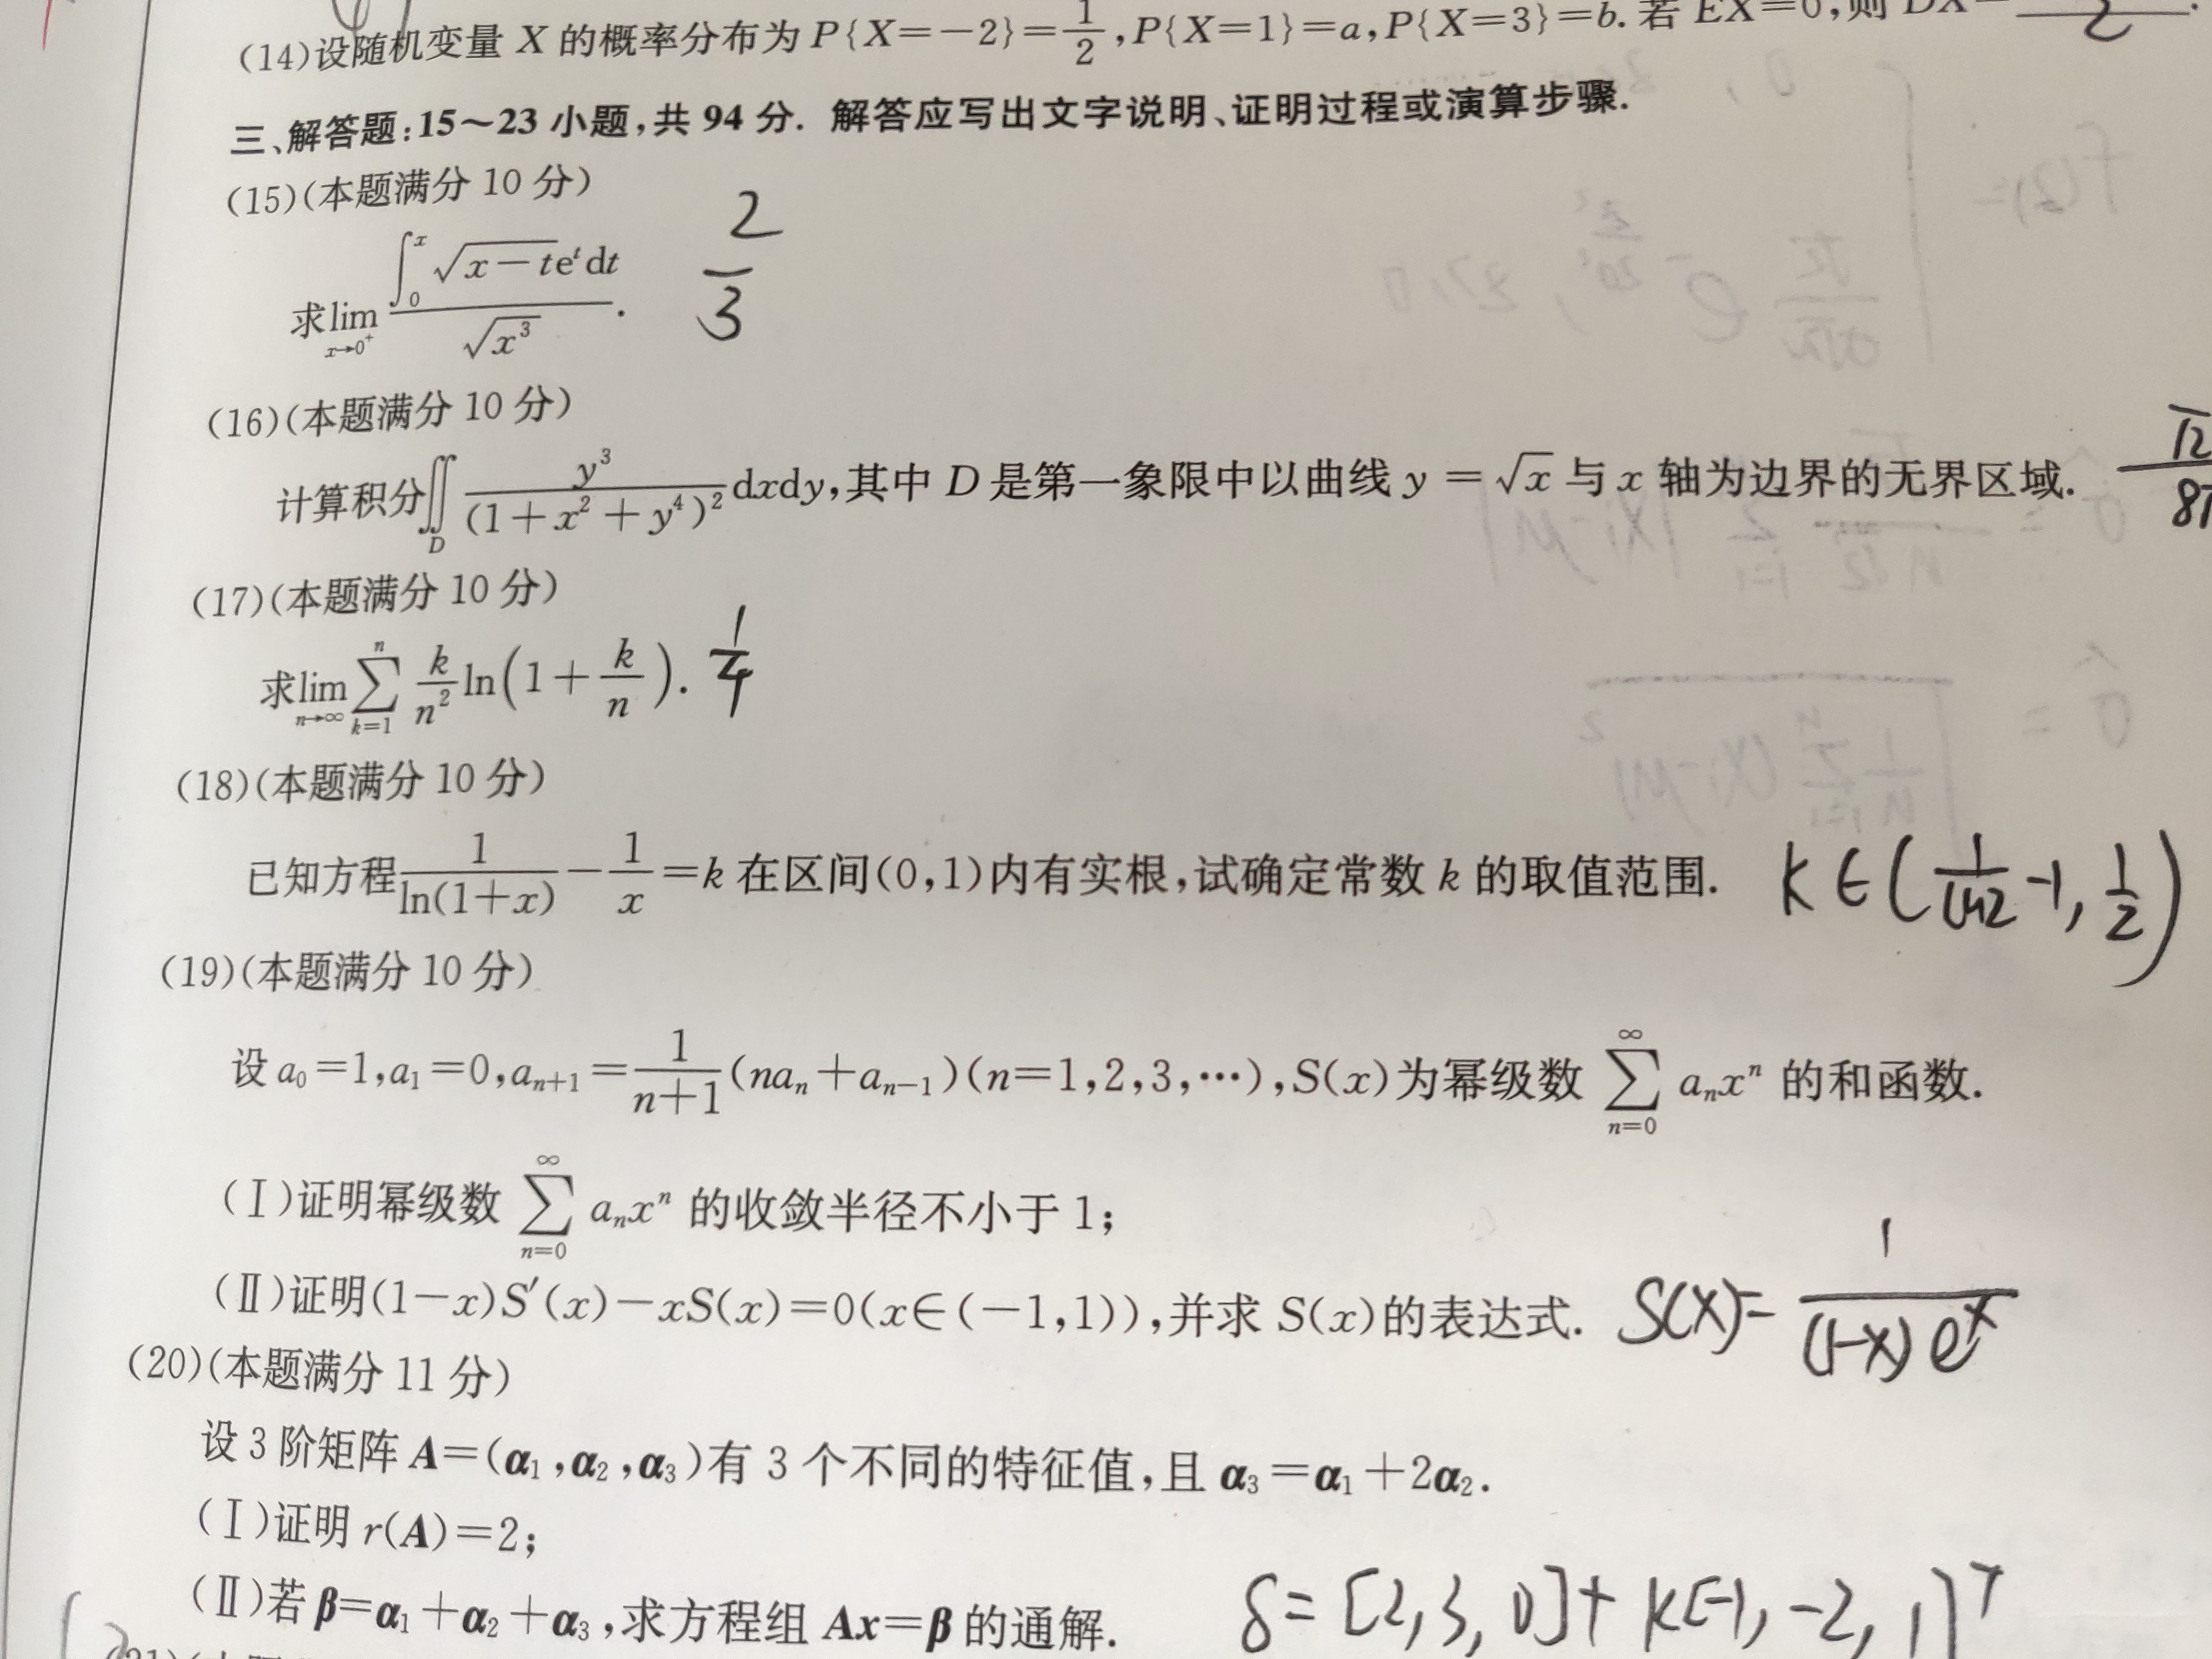 (14)设随机变量 X 的概率分布为 P{X=-2}=1/2,P{X=1}=a,P{X=3}=b. 若 EX=0,则 DX=
三、解答题:15～23 小题,共 94 分. 解答应写出文字说明、证明过程或演算步骤.
(15)(本题满分 10 分)
求lim_{x→0⁺} ∫₀ˣ √(x-t)eᵗdt / √(x³). 2/3
(16)(本题满分 10 分)
计算积分∬_D y³/(1+x²+y⁴)² dxdy,其中 D 是第一象限中以曲线 y=√x 与 x 轴为边界的无界区域.
(17)(本题满分 10 分)
求lim_{n→∞} ∑_{k=1}^{n} k/n² ln(1+k/n). 1/4
(18)(本题满分 10 分)
已知方程 1/ln(1+x) - 1/x = k 在区间(0,1)内有实根,试确定常数 k 的取值范围. k∈(1/ln2 -1, 1/2)
(19)(本题满分 10 分)
设 a₀=1,a₁=0,a_{n+1}=1/(n+1) (na_n+a_{n-1})(n=1,2,3,…),S(x)为幂级数 ∑_{n=0}^{∞} a_n xⁿ 的和函数.
(Ⅰ)证明幂级数 ∑_{n=0}^{∞} a_n xⁿ 的收敛半径不小于 1;
(Ⅱ)证明(1-x)S′(x)-xS(x)=0(x∈(-1,1)),并求 S(x)的表达式. S(x)=1/((1-x)eˣ)
(20)(本题满分 11 分)
设 3 阶矩阵 A=(α₁,α₂,α₃)有 3 个不同的特征值,且 α₃=α₁+2α₂.
(Ⅰ)证明 r(A)=2;
(Ⅱ)若 β=α₁+α₂+α₃,求方程组 Ax=β 的通解. δ=[2,3,0]+k[-1,-2,1]ᵀ